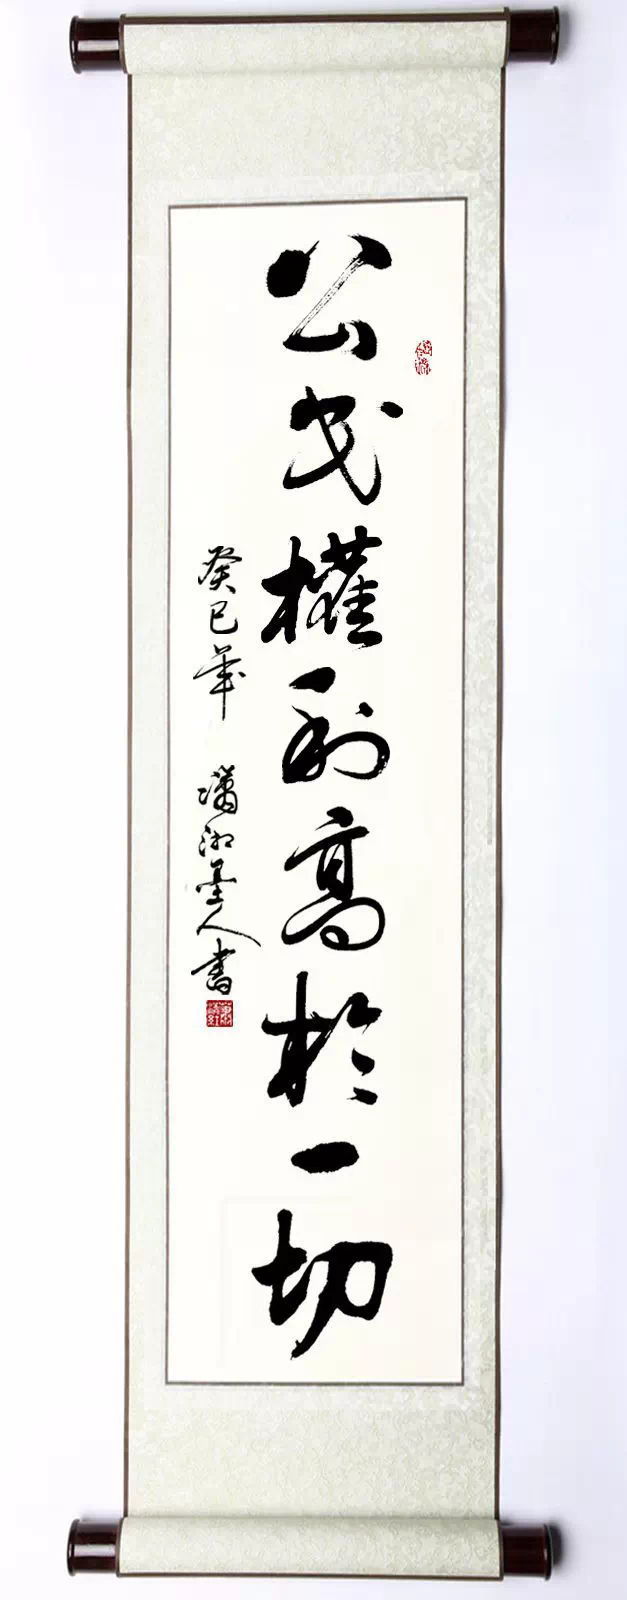 公民權利高於一切
癸巳年 瀟湘墨人書